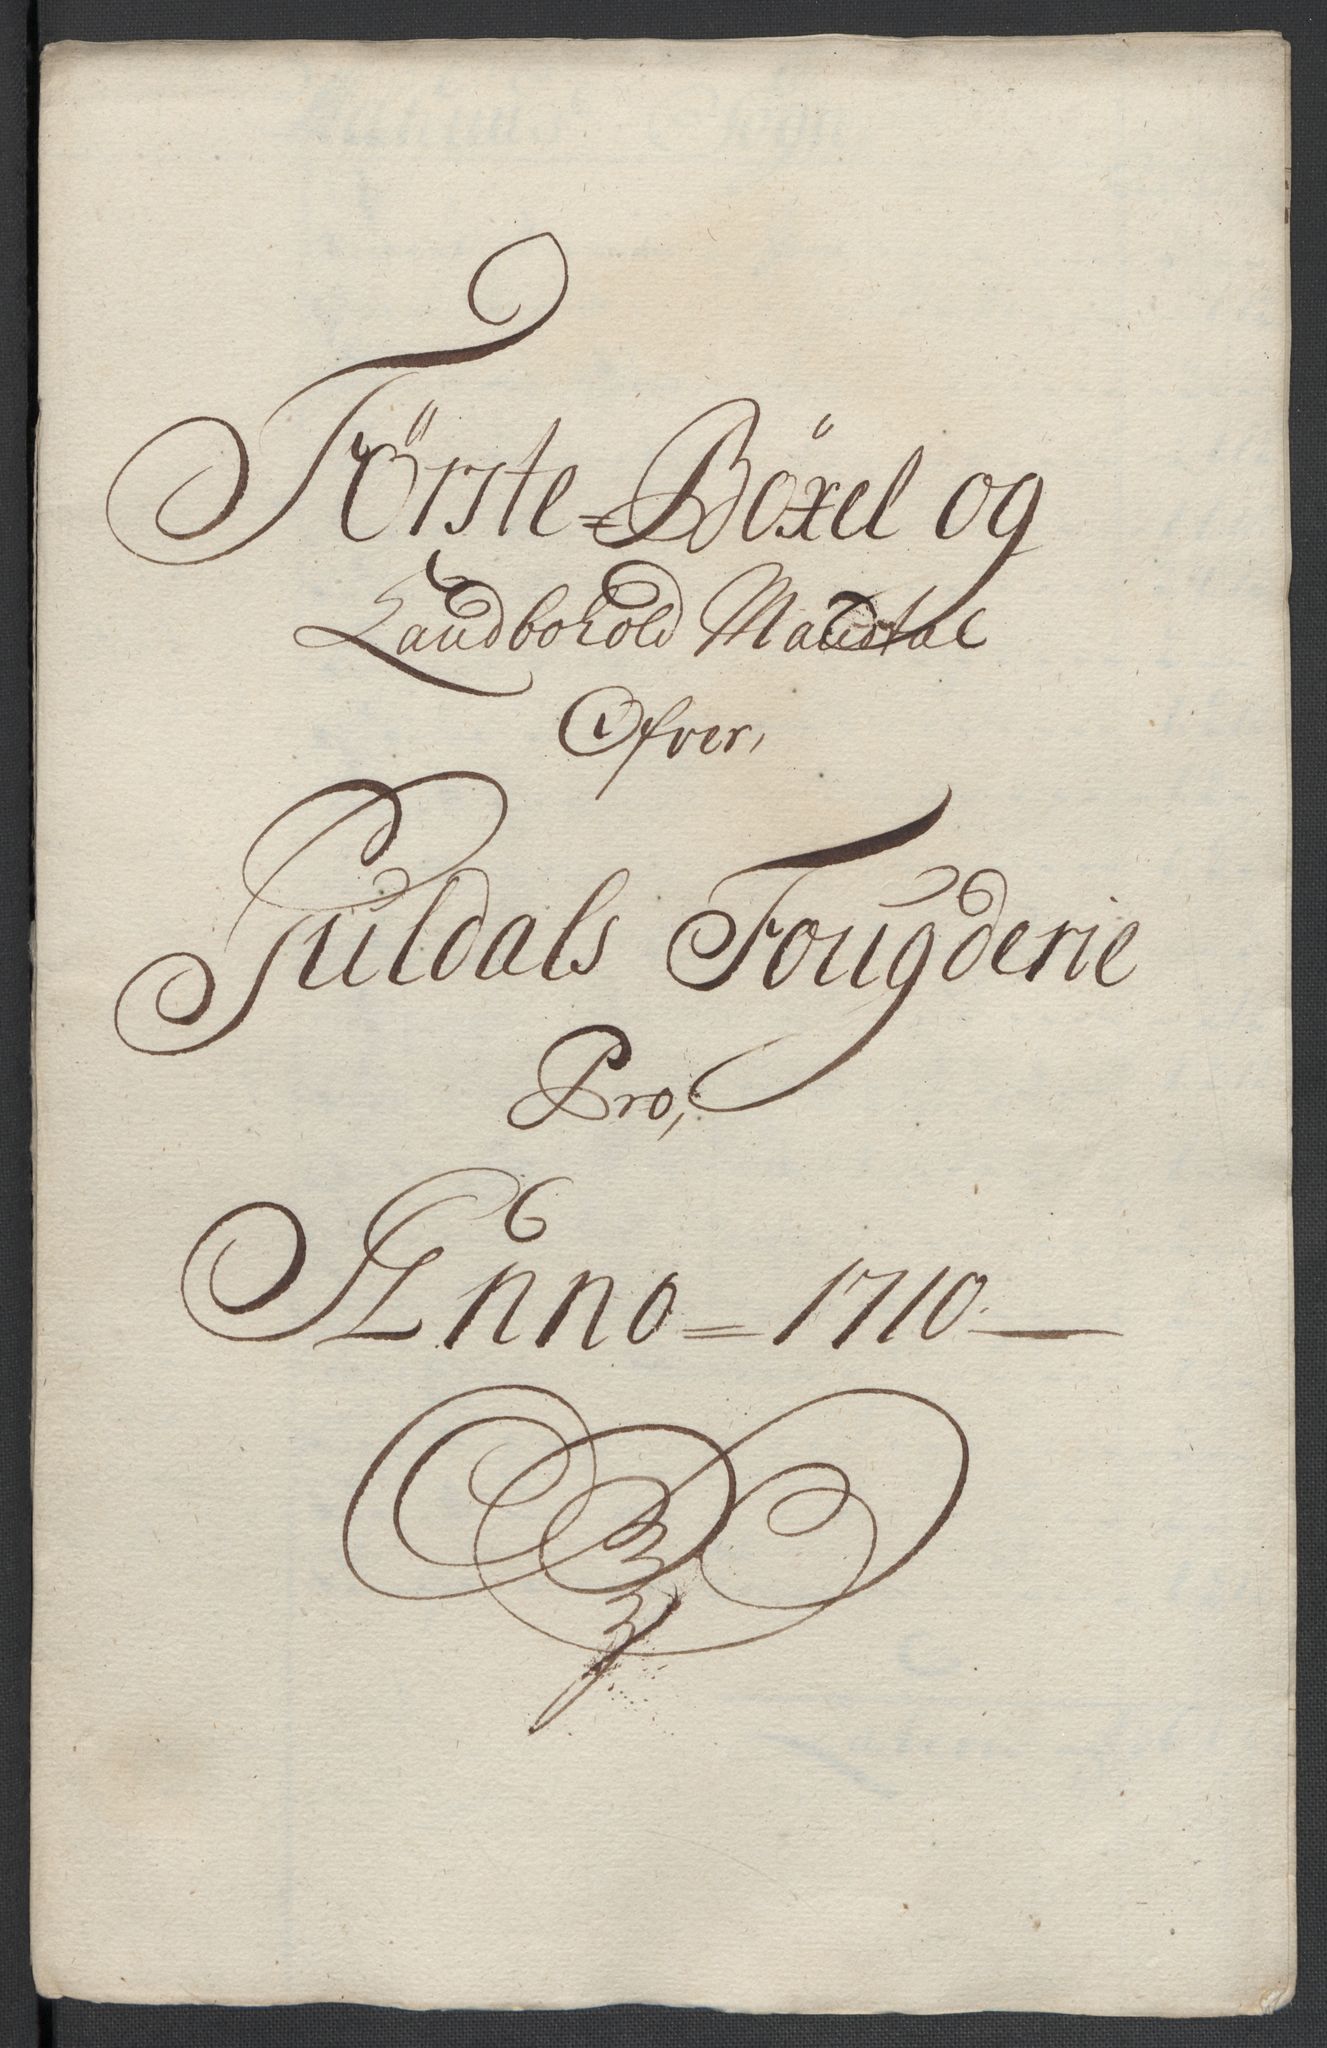 Förste=Böxel og
Landbohold Mandtal
Ofver,
Guldals Fougderie
Pro,
Anno = 1710 —